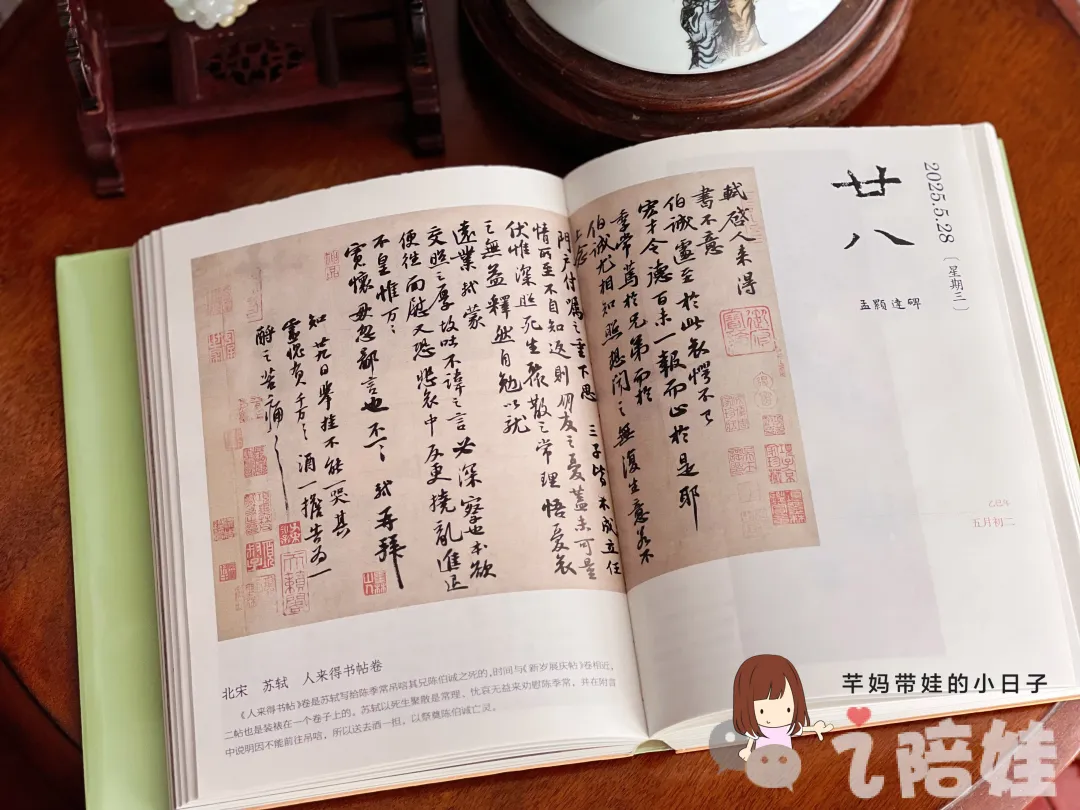 廿八
2025.5.28
〔星期三〕
孟顯達碑
乙巳年
五月初二
軾啓人來得
書不意
伯誠遽至於此哀愕不已
宏才令德百未一報而止於是耶
季常篤於兄弟而於
伯誠尤相知照想聞之無復生意若不
上念
門户付囑之重下思三子皆不成立任
情所至不自知返則朋友之憂蓋未可量
伏惟深照死生聚散之常理悟憂哀
之無益釋然自勉以就
遠業軾蒙
交照之厚故吐不諱之言必深察也本欲
便往面慰又恐悲哀中反更撓亂進退
不皇惟万万
寬懷毋忽鄙言也不一一軾再拜
知廿九日舉挂不能一哭其
靈愧負千万千万酒一擔告為一
酹之苦痛苦痛
北宋 苏轼 人来得书帖卷
《人来得书帖》卷是苏轼写给陈季常吊唁其兄陈伯诚之死的,时间与《新岁展庆帖》卷相近,
二帖也是装裱在一个卷子上的。苏轼以死生聚散是常理、忧哀无益来劝慰陈季常,并在附言
中说明因不能前往吊唁,所以送去酒一担,以祭奠陈伯诚亡灵。
芊妈带娃的小日子
飞陪娃